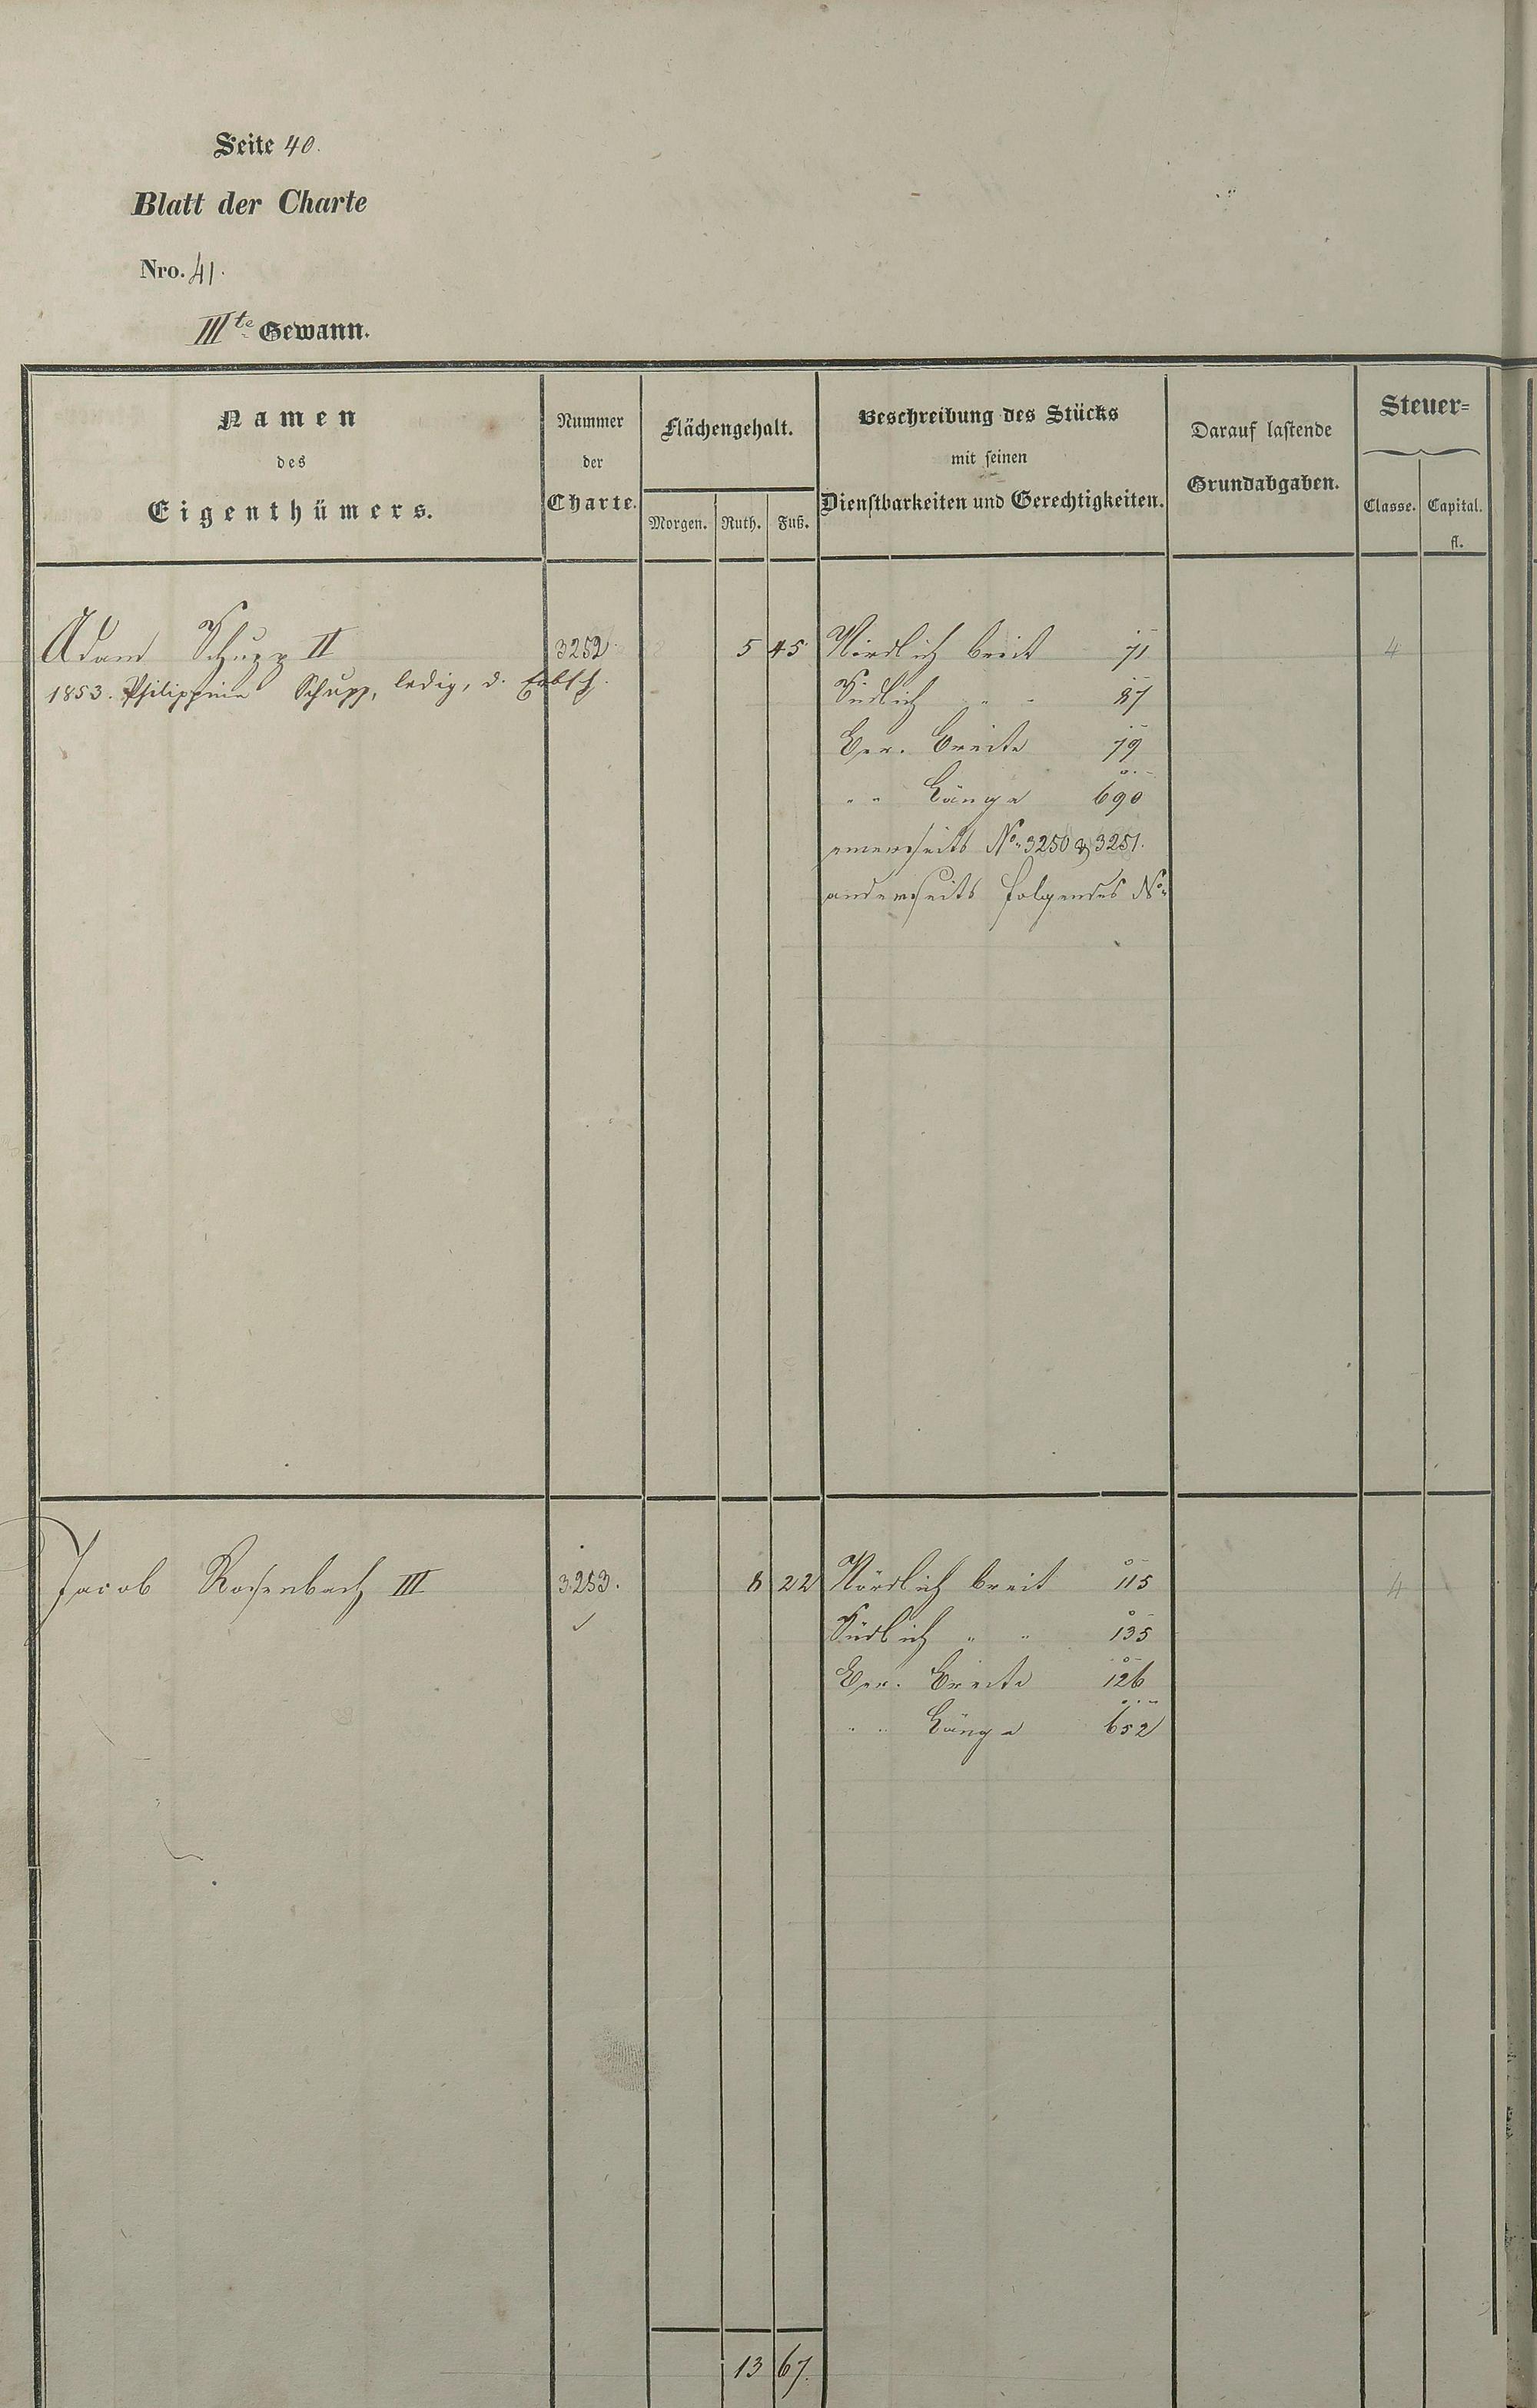 Seite 40.
Blatt der Charte
Nro. 41.
IIIte Gewann.
Namen des Eigenthümers.
Nummer der Charte.
Flächengehalt.
Morgen. Ruth. Fuß.
Beschreibung des Stücks mit seinen Dienstbarkeiten und Gerechtigkeiten.
Darauf lastende Grundabgaben.
Steuer=
Classe. Capital. fl.
Adam Schupp II 3252 5 45 Nördlich breit 71 4
1853. Philippine Schupp, ledig, d. Erbsch.
Südlich " " 87
Ger. Breite 79
" " Länge 690
einerseits No. 3250 & 3251.
anderseits folgendes No.
Jacob Rosenbach III 3253. 8 22 Nördlich breit 115 4
Südlich " " 135
Ger. Breite 126
" " Länge 652
13 67.